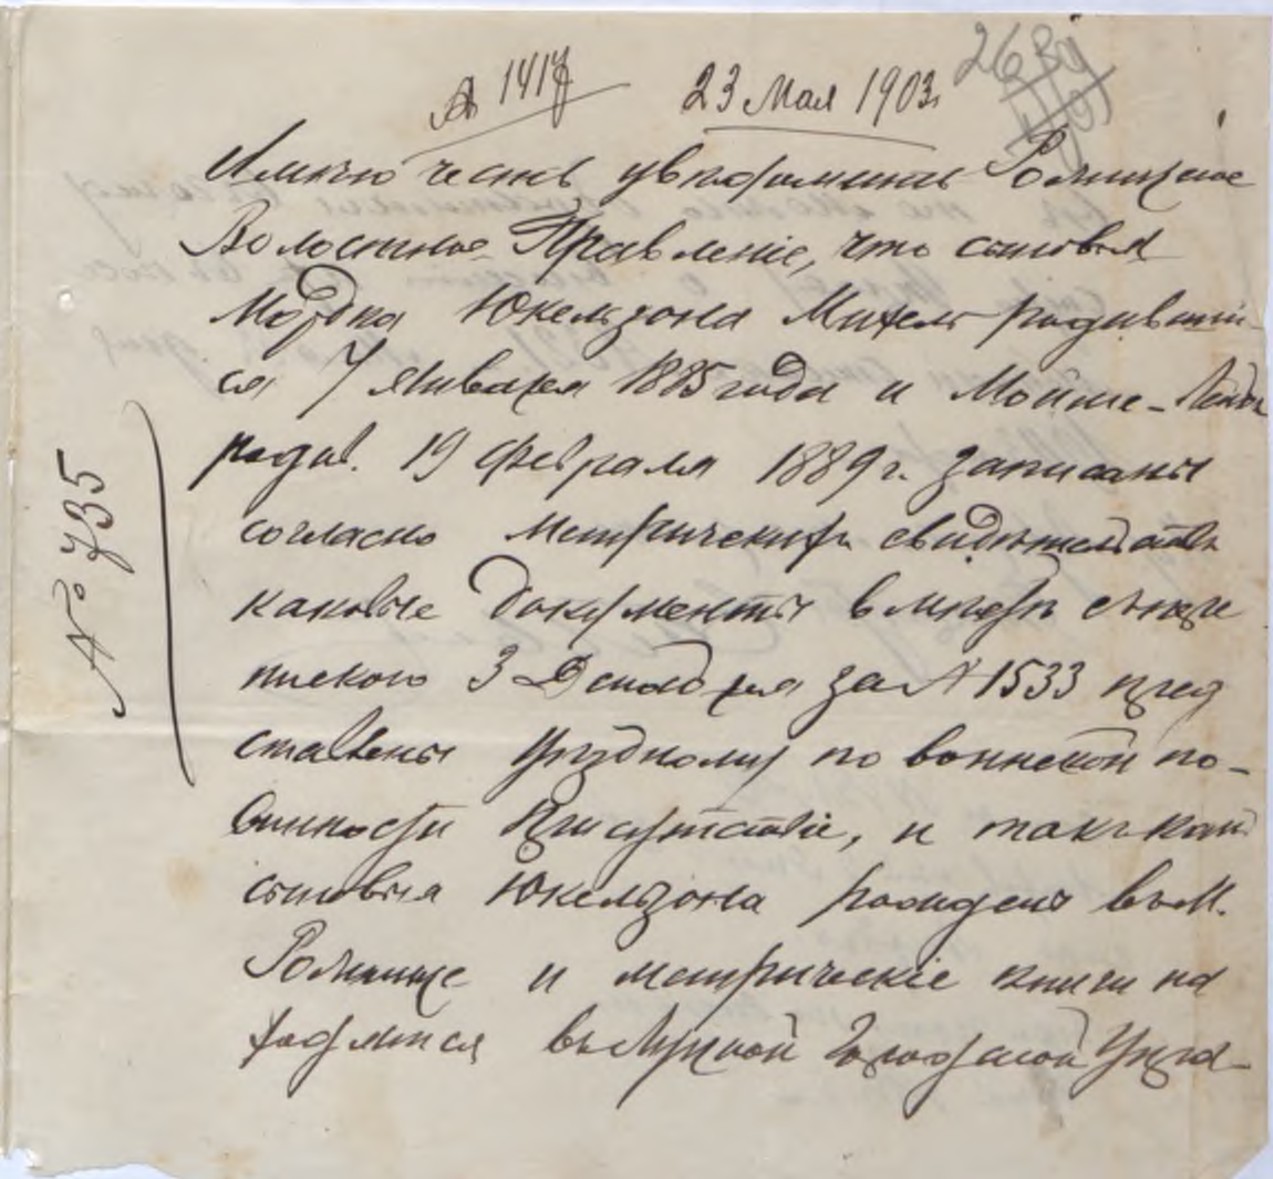 № 1417 23 Мая 1903 г.
Имею честь увѣдомить Рожищское
Волостное Правленіе, что сыновья
Мордка Юкельзона Михель родивший-
ся 7 Января 1885 года и Мойше-
родив. 19 Февраля 1889 г. записаны
согласно метрических свидѣтельствъ
каковые документы
3 Декабря за № 1533 пред
ставлены Уѣздному по воинской по-
винности Присутствіе, и такъ какъ
сыновья Юкельзона рождены въ М.
Рожище и метрическіе книги на
ходятся въ Луцкой Городской Упра-
№ 735